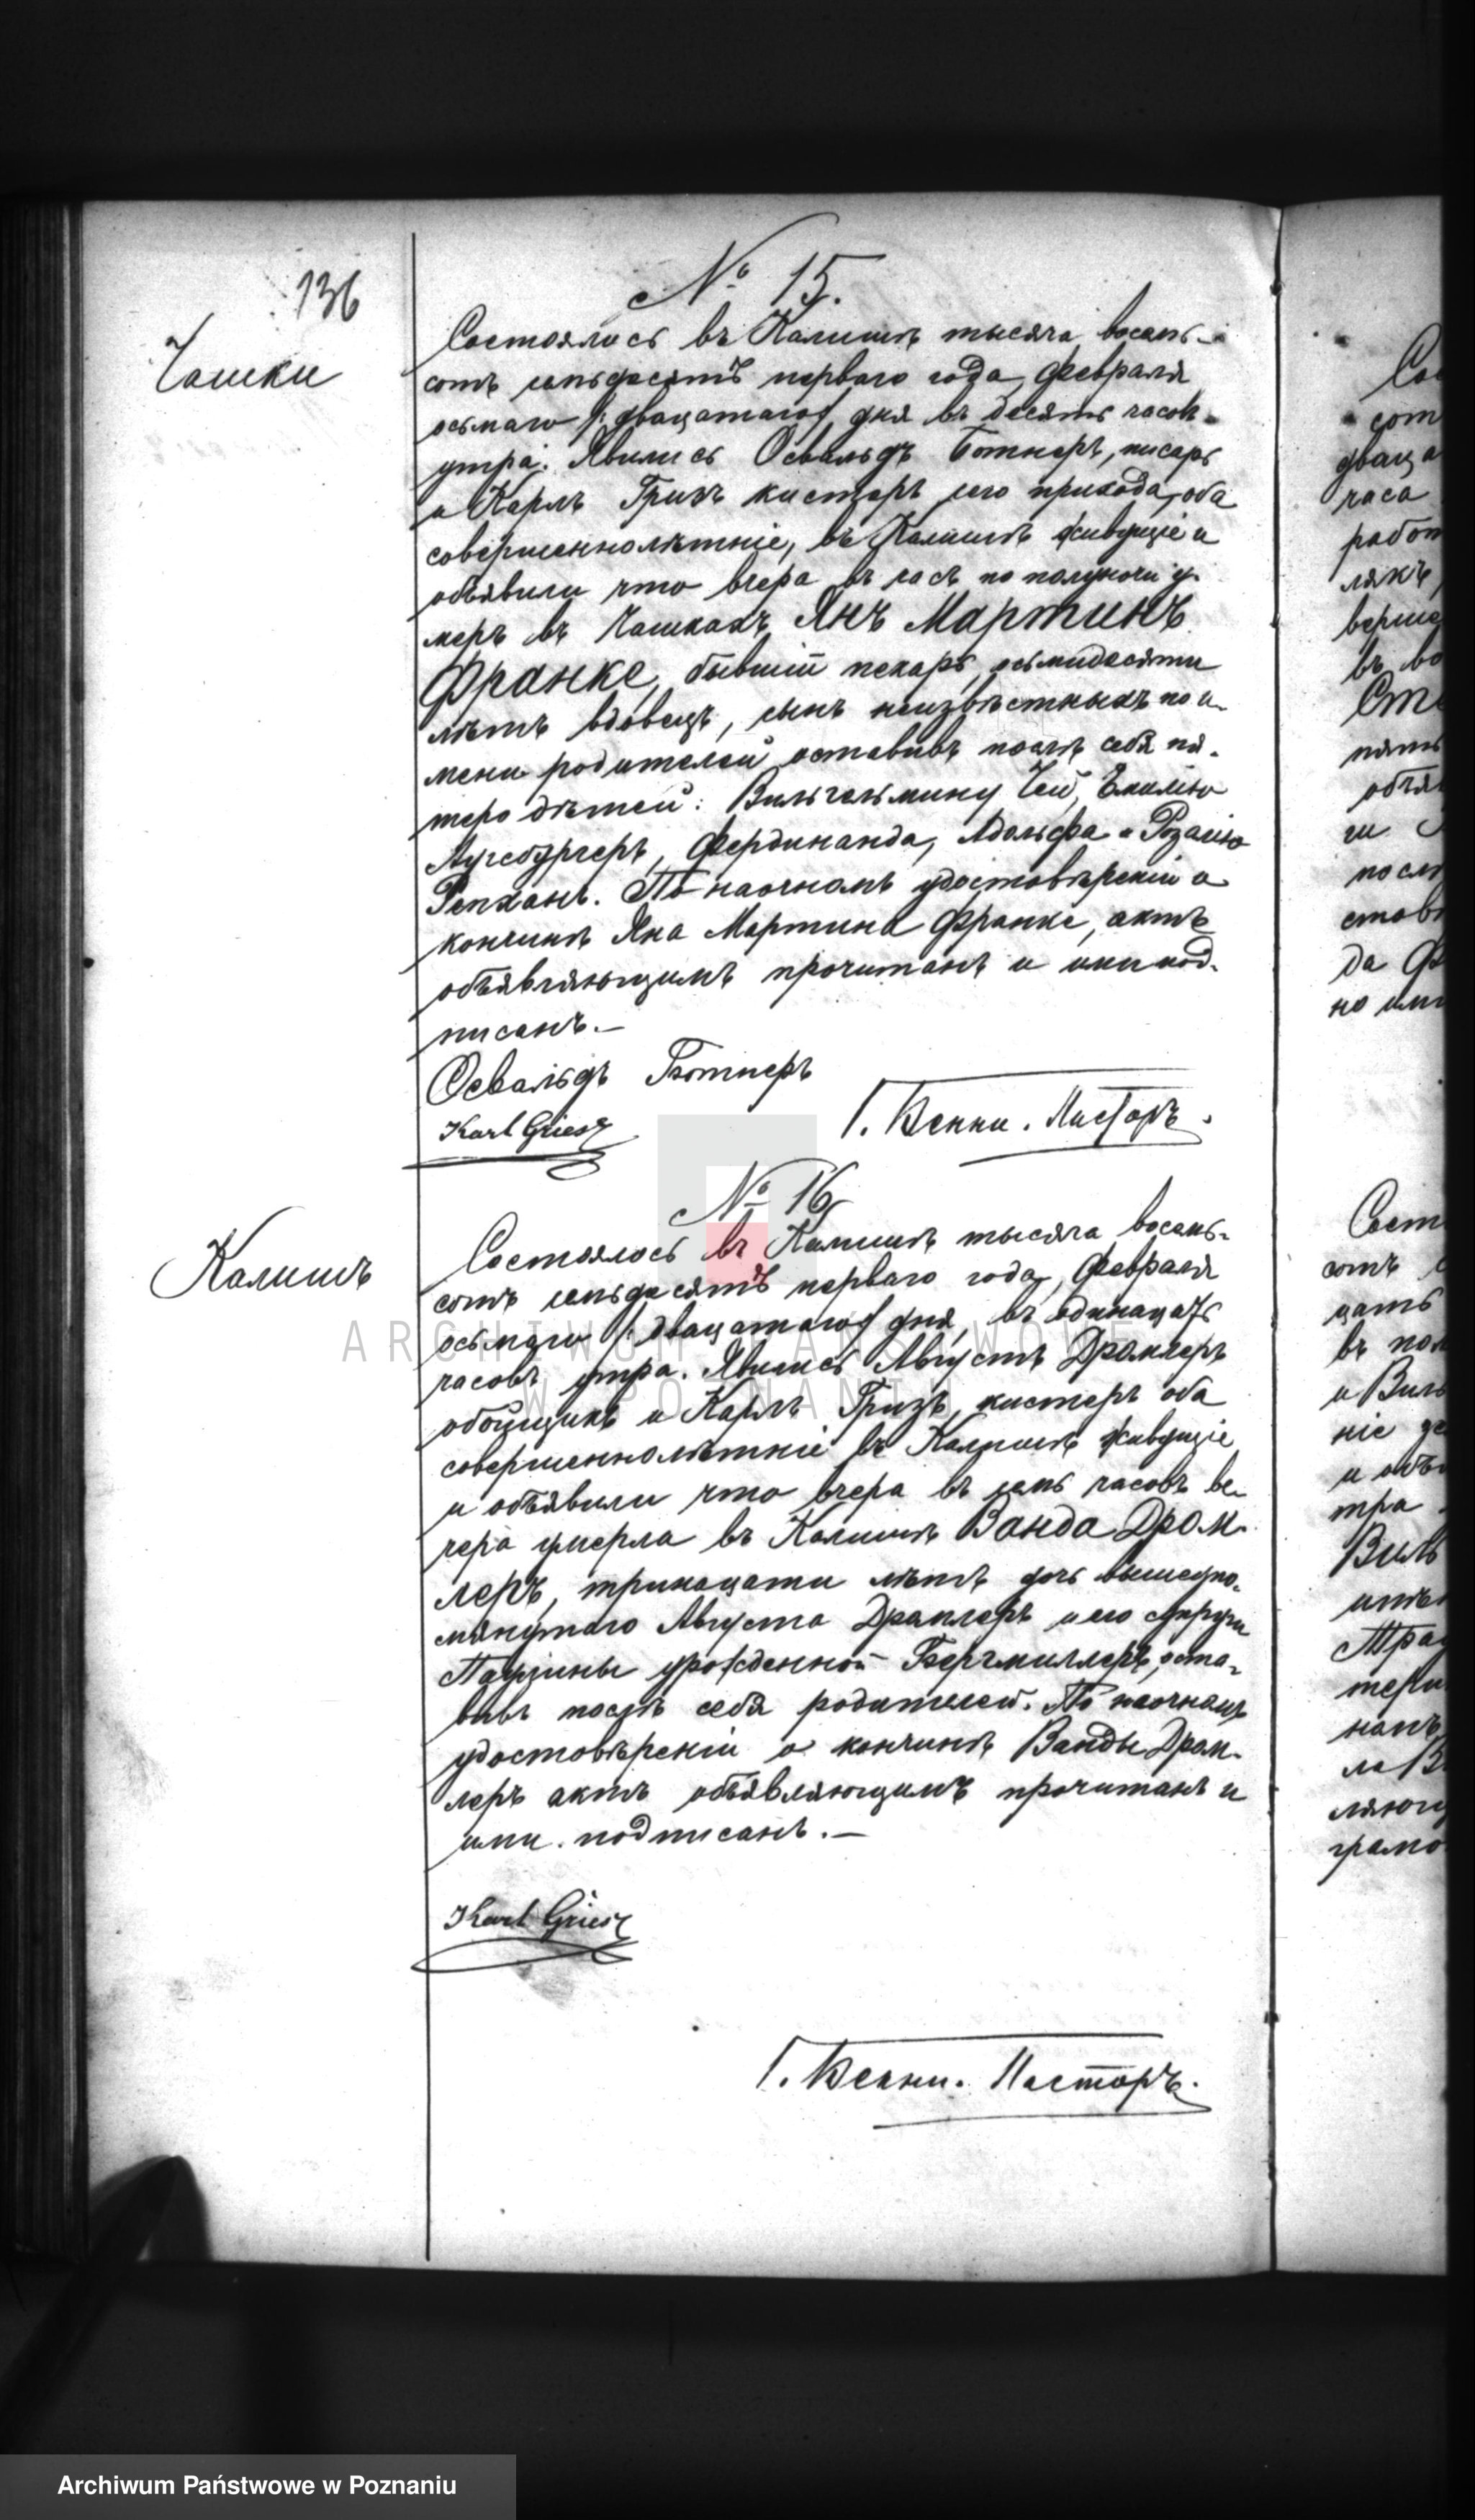 136
Чашки
№ 15.
Состоялось въ Калишѣ тысяча восемь-
сотъ семьдесятъ перваго года, Февраля
осьмаго /:двацатаго/ дня въ десять часовъ
утра. Явились Освальдъ Ботнеръ, писарь
и Карлъ Гризъ кистеръ сего прихода, оба
совершеннолѣтніе, въ Калишѣ живущіе и
объявили что вчера въ часъ по полуночи у-
меръ въ Чашкахъ Янъ Мартинъ
Франке, бывшій пекарь, осьмидесяти
лѣтъ вдовецъ, сынъ неизвѣстныхъ по и-
мени родителей оставивъ послѣ себя пя-
теро дѣтей: Вильгельмину Чей, Емилію
Аугсбургеръ, Фердинанда, Адольфа и Розалію
Репханъ. По наочномъ удостовѣреніи о
кончинѣ Яна Мартина Франке, актъ
объявляющимъ прочитанъ и ими под-
писанъ.—
Освальдъ Ботнеръ
Karl Griesz
Г. Венни. Пасторъ.
№ 16
Калишъ
Состоялось въ Калишѣ тысяча восемь-
сотъ семьдесятъ перваго года, Февраля
осьмаго /:двацатаго/ дня, въ одинацать
часовъ утра. Явились Августъ Дромлеръ
обойщикъ и Карлъ Гризъ, кистеръ оба
совершеннолѣтніе въ Калишѣ живущіе
и объявили что вчера въ семь часовъ ве-
чера умерла въ Калишѣ Ванда Дром-
леръ, тринацати лѣтъ дочь вышеупо-
мянутаго Августа Дромлеръ и его супруги
Паулины урожденной Бергмиллеръ, оста-
вивъ послѣ себя родителей. По наочномъ
удостовѣреніи о кончинѣ Ванды Дром-
леръ актъ объявляющимъ прочитанъ и
ими подписанъ.—
Karl Griesz
Г. Венни. Пасторъ.
ARCHIWUM PAŃSTWOWE
W POZNANIU
Archiwum Państwowe w Poznaniu